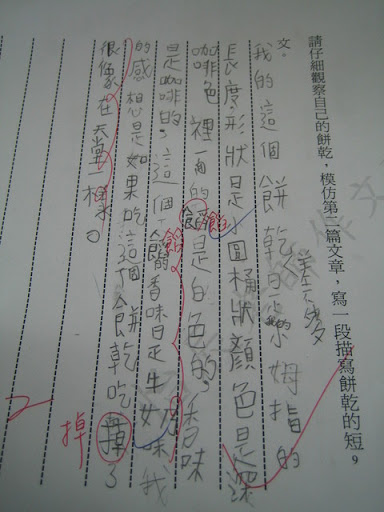 請仔細觀察自己的餅乾，模仿第篇文章，寫一段描寫餅乾的短
文。我的這個餅乾是小姆指的
差不多
長度,形狀是小圓桶狀顏色是深
咖啡色裡面的餡是白色的,香味
餡
是咖啡的,這個餡香味是牛奶味我
餡
的感想是如果吃這個餅乾吃掉了
掉
很像在天堂一樣。